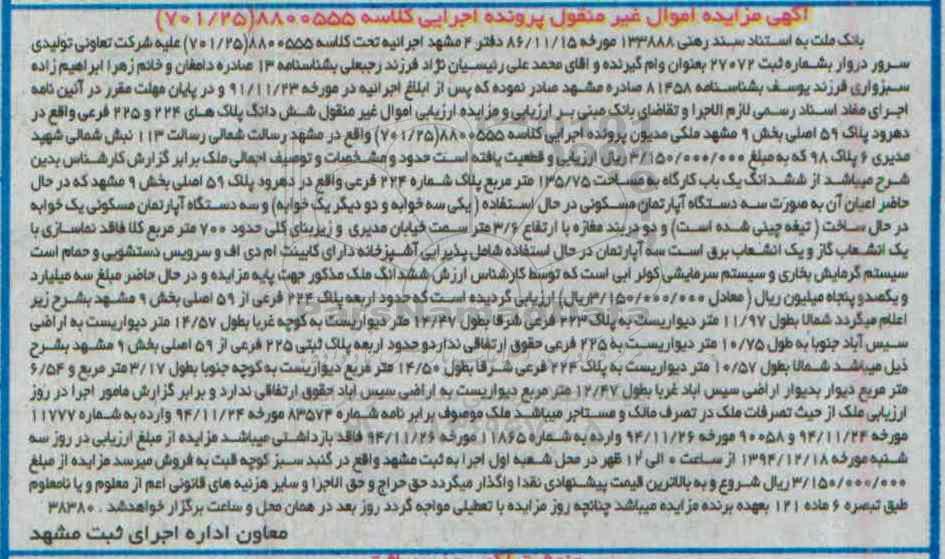 آگهی مزایده اموال غیر منقول پرونده اجرایی کلاسه ۸۸۰۰۵۵۵(۷۰۱/۲۵)
بانک ملت به استناد سند رهنی ۱۳۳۸۸۸ مورخه ۸۶/۱۱/۱۵ دفتر ۴ مشهد اجرائیه تحت کلاسه ۸۸۰۰۵۵۵(۷۰۱/۲۵) علیه شرکت تعاونی تولیدی
سرور دروار بشماره ثبت ۲۷۰۷۲ بعنوان وام گیرنده و اقای محمد علی رئیسیان نژاد فرزند رجبعلی بشناسنامه ۱۳ صادره دامغان و خانم زهرا ابراهیم زاده
سبزواری فرزند یوسف بشناسنامه ۸۱۴۵۸ صادره مشهد صادر نموده که پس از ابلاغ اجرائیه در مورخه ۹۱/۱۱/۲۳ و در پایان مهلت مقرر در آئین نامه
اجرای مفاد اسناد رسمی لازم الاجرا و تقاضای بانک مبنی بر ارزیابی و مزایده ارزیابی اموال غیر منقول شش دانگ پلاک های ۲۲۴ و ۲۲۵ فرعی واقع در
دهرود پلاک ۵۹ اصلی بخش ۹ مشهد ملکی مدیون پرونده اجرایی کلاسه ۸۸۰۰۵۵۵(۷۰۱/۲۵) واقع در مشهد رسالت شمالی رسالت ۱۱۳ نبش شمالی شهید
مدیری ۶ پلاک ۹۸ که به مبلغ ۳/۱۵۰/۰۰۰/۰۰۰ ریال ارزیابی و قطعیت یافته است حدود و مشخصات و توصیف اجمالی ملک برابر گزارش کارشناس بدین
شرح میباشد از ششدانگ یک باب کارگاه به مساحت ۱۳۵/۷۵ متر مربع پلاک شماره ۲۲۴ فرعی واقع در دهرود پلاک ۵۹ اصلی بخش ۹ مشهد که در حال
حاضر اعیان آن به صورت سه دستگاه آپارتمان مسکونی در حال استفاده ( یکی سه خوابه و دو دیگر یک خوابه) و سه دستگاه آپارتمان مسکونی یک خوابه
در حال ساخت ( تیغه چینی شده است) و دو دربند مغازه با ارتفاع ۳/۶ متر سمت خیابان مدیری و زیربنای کلی حدود ۷۰۰ متر مربع کلا فاقد نماسازی با
یک انشعاب گاز و یک انشعاب برق است سه آپارتمان در حال استفاده شامل پذیرایی آشپزخانه دارای کابینت ام دی اف و سرویس دستشویی و حمام است
سیستم گرمایش بخاری و سیستم سرمایشی کولر ابی است که توسط کارشناس ارزش ششدانگ ملک مذکور جهت پایه مزایده و در حال حاضر مبلغ سه میلیارد
و یکصدو پنجاه میلیون ریال ( معادل ۳/۱۵۰/۰۰۰/۰۰۰ریال) ارزیابی گردیده است که حدود اربعه پلاک ۲۲۴ فرعی از ۵۹ اصلی بخش ۹ مشهد بشرح زیر
اعلام میگردد شمالا بطول ۱۱/۹۷ متر دیواریست به پلاک ۲۲۳ فرعی شرقا بطول ۱۲/۴۷ متر دیواریست به کوچه غربا بطول ۱۴/۵۷ متر دیواریست به اراضی
سیس آباد جنوبا به طول ۱۰/۷۵ متر دیواریست به ۲۲۵ فرعی حقوق ارتفاقی ندارد و حدود اربعه پلاک ثبتی ۲۲۵ فرعی از ۵۹ اصلی بخش ۹ مشهد بشرح
ذیل میباشد شمالا بطول ۱۰/۵۷ متر دیواریست به پلاک ۲۲۴ فرعی شرقا بطول ۱۴/۵۰ متر مربع دیواریست به کوچه جنوبا بطول ۳/۱۷ متر مربع و ۶/۵۴
متر مربع دیوار بدیوار اراضی سیس اباد غربا بطول ۱۲/۴۷ متر مربع دیواریست به اراضی سیس اباد حقوق ارتفاقی ندارد و برابر گزارش مامور اجرا در روز
ارزیابی ملک از حیث تصرفات ملک در تصرف مالک و مستاجر میباشد ملک موصوف برابر نامه شماره ۸۳۵۷۴ مورخه ۹۴/۱۱/۲۴ وارده به شماره ۱۱۷۷۷
مورخه ۹۴/۱۱/۲۴ و ۹۰۰۵۸ مورخه ۹۴/۱۱/۲۶ وارده به شماره ۱۱۸۶۵ مورخه ۹۴/۱۱/۲۶ فاقد بازداشتی میباشد مزایده از مبلغ ارزیابی در روز سه
شنبه مورخه ۱۳۹۴/۱۲/۱۸ از ساعت ۹ الی ۱۲ ظهر در محل شعبه اول اجرا به ثبت مشهد واقع در گنبد سبز کوچه قبت به فروش میرسد مزایده از مبلغ
۳/۱۵۰/۰۰۰/۰۰۰ ریال شروع و به بالاترین قیمت پیشنهادی نقدا واگذار میگردد حق حراج و حق الاجرا و سایر هزینه های قانونی اعم از معلوم و یا نامعلوم
طبق تبصره ۶ ماده ۱۲۱ بعهده برنده مزایده میباشد چنانچه روز مزایده با تعطیلی مواجه گردد روز بعد در همان محل و ساعت برگزار خواهدشد . ۳۸۳۸۰
معاون اداره اجرای ثبت مشهد